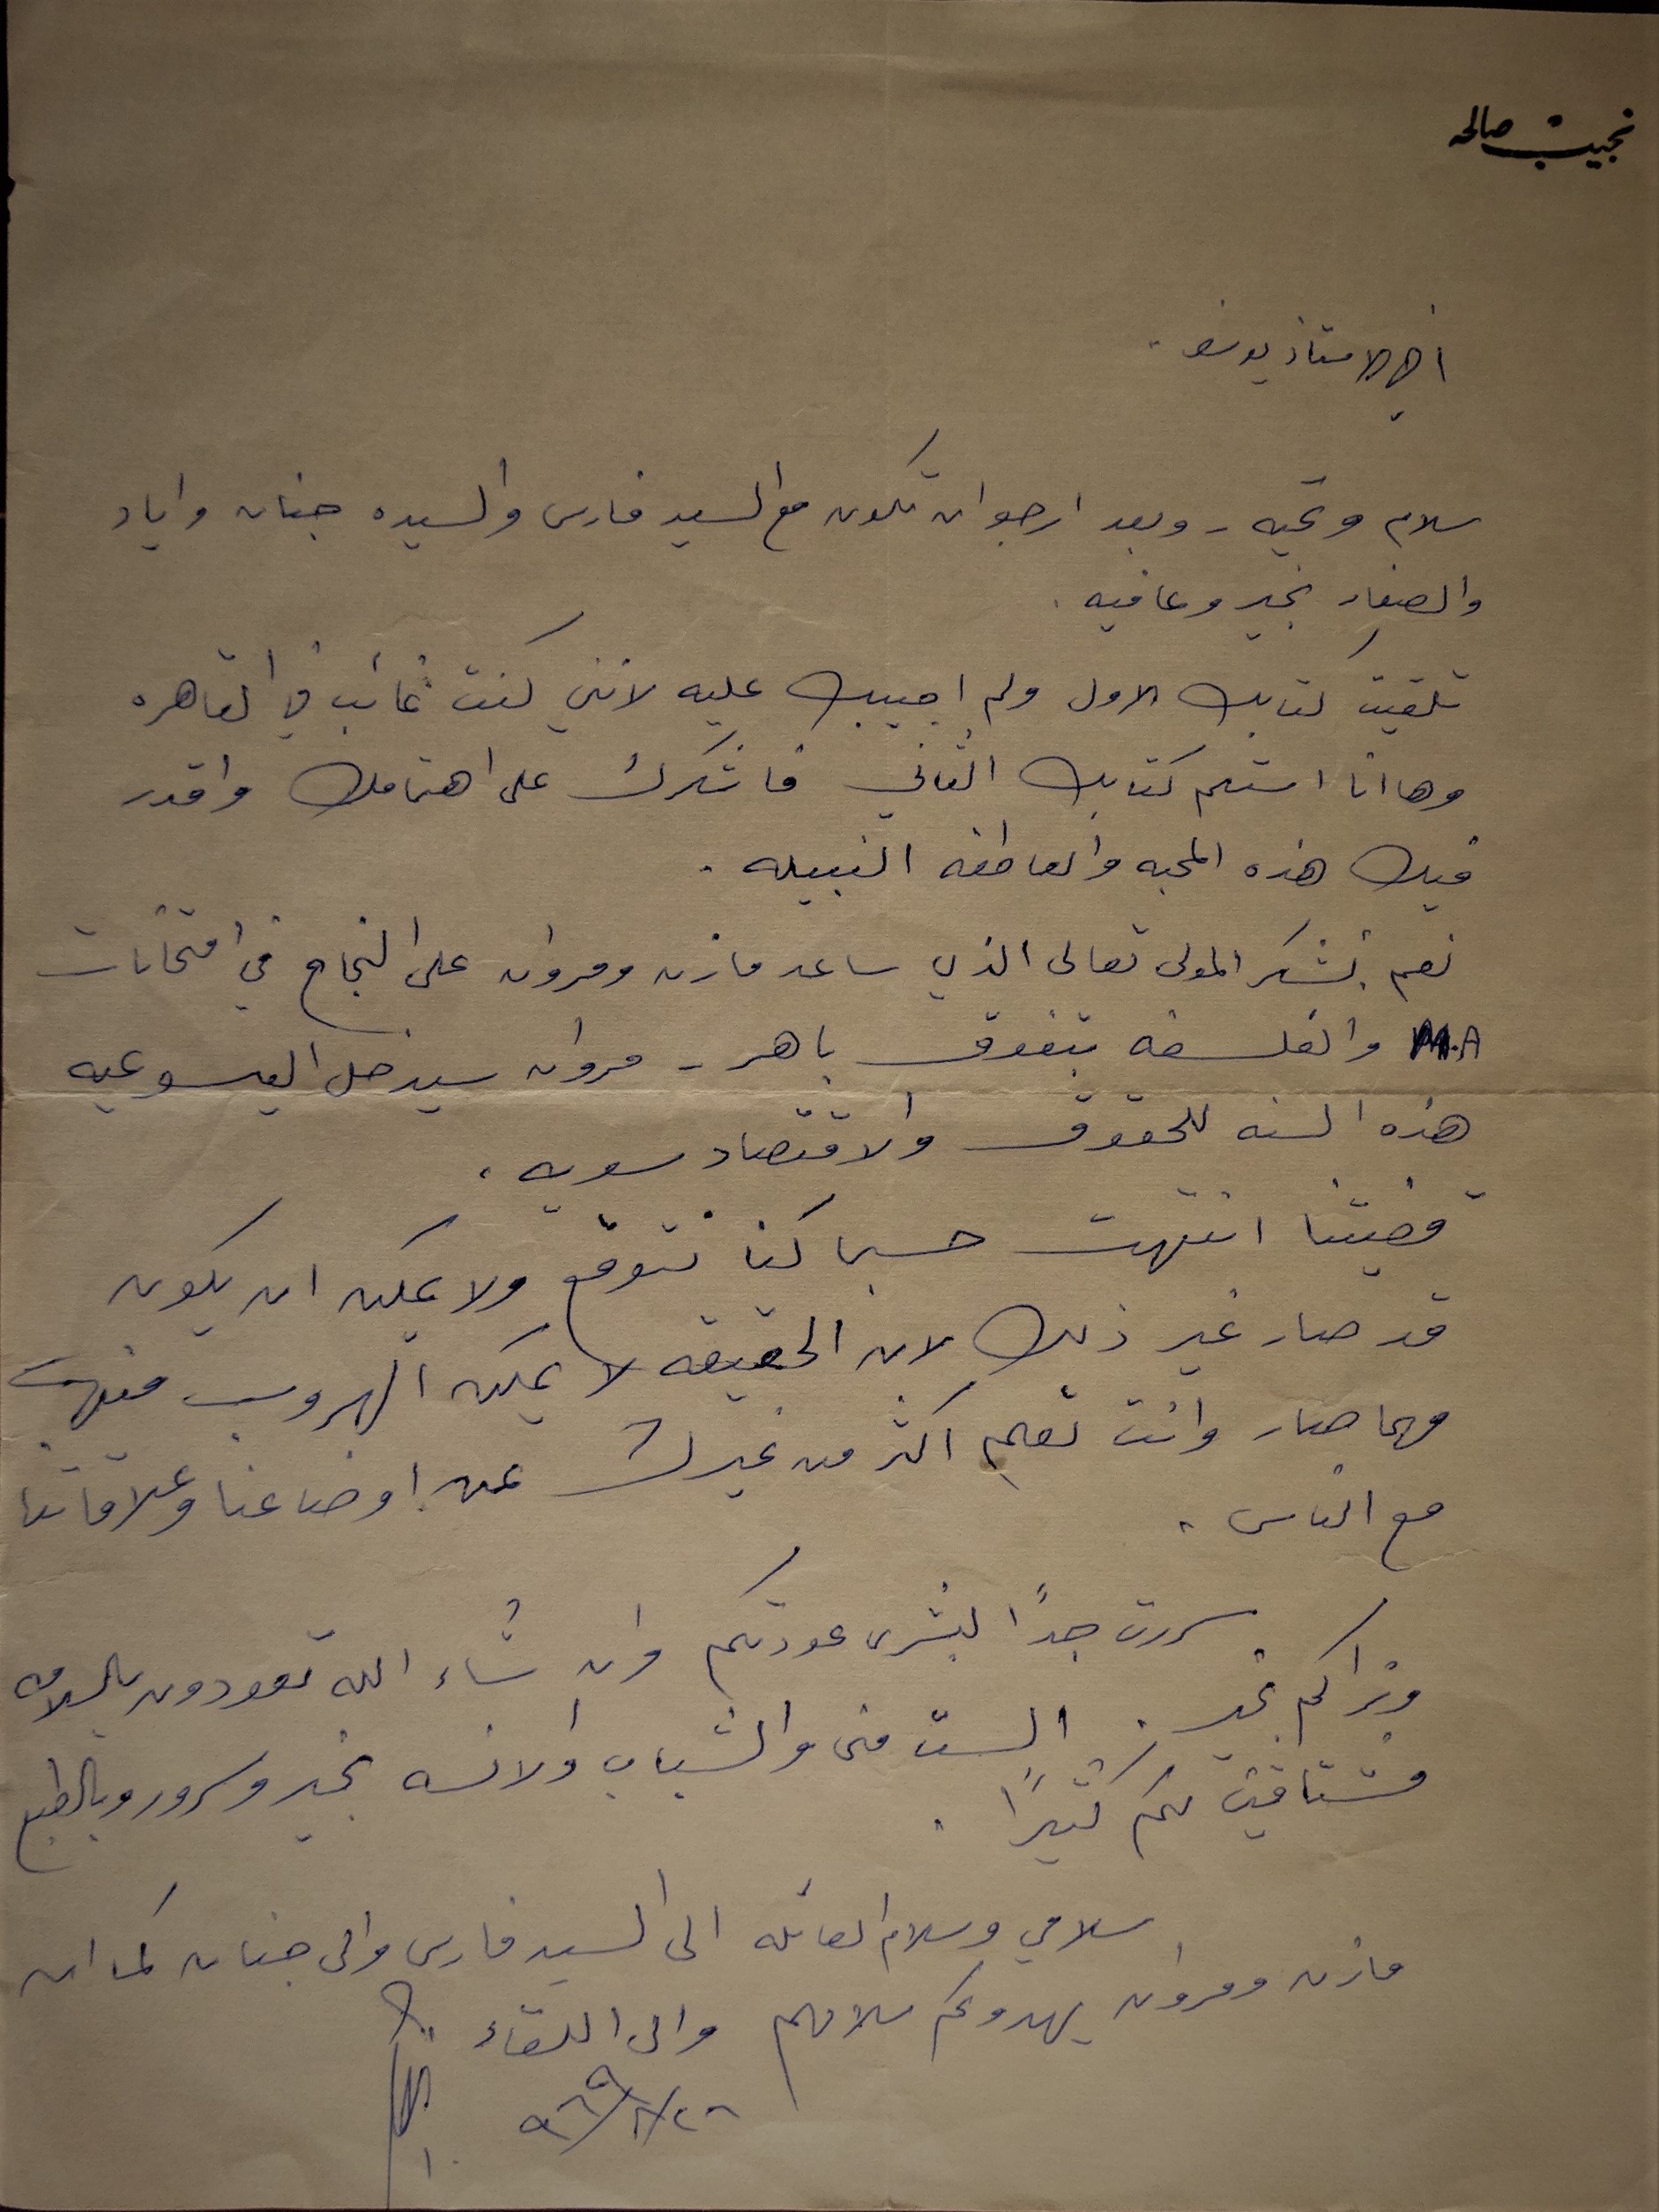 نجيب صالحه
اخي الاستاذ يوسف .
سلام وتحيه - وبعد ارجو ان تكون مع السيد فارس والسيده جنان واياد
والصغار بخير وعافيه .
تلقيت كتابك الاول ولم اجيبك عليه لانني كنت غائب في القاهره
وها انا استلم كتابك الثاني فاشكرك على اهتمامك واقدر
فيك هذه المحبه والعاطفه النبيله .
نعم نشكر المولى تعالى الذي ساعد مازن ومروان على النجاح في امتحانات
M.A والفلسفه بتفوق باهر - مروان سيدخل اليسوعيه
هذه السنه للحقوق والاقتصاد سويه .
قضيتنا انتهت حسبما كنا نتوقع ولا يمكن ان يكون
قد صار غير ذلك لان الحقيقه لا يمكن الهروب منها
مهما صار وانت تعلم اكثر من غيرك عن اوضاعنا وعلاقاتنا
مع الناس .
سررت جداً لبشرى عودتكم وان شاء الله تعودون بالسلامه
ونراكم بخير . الست منى والشباب والانسه بخير وسرور وبالطبع
مشتاقين لكم كثيراً .
سلامي وسلام العائله الى السيد فارس والى جنان كما ان
مازن ومروان يهدوكم سلامهم والى اللقاء